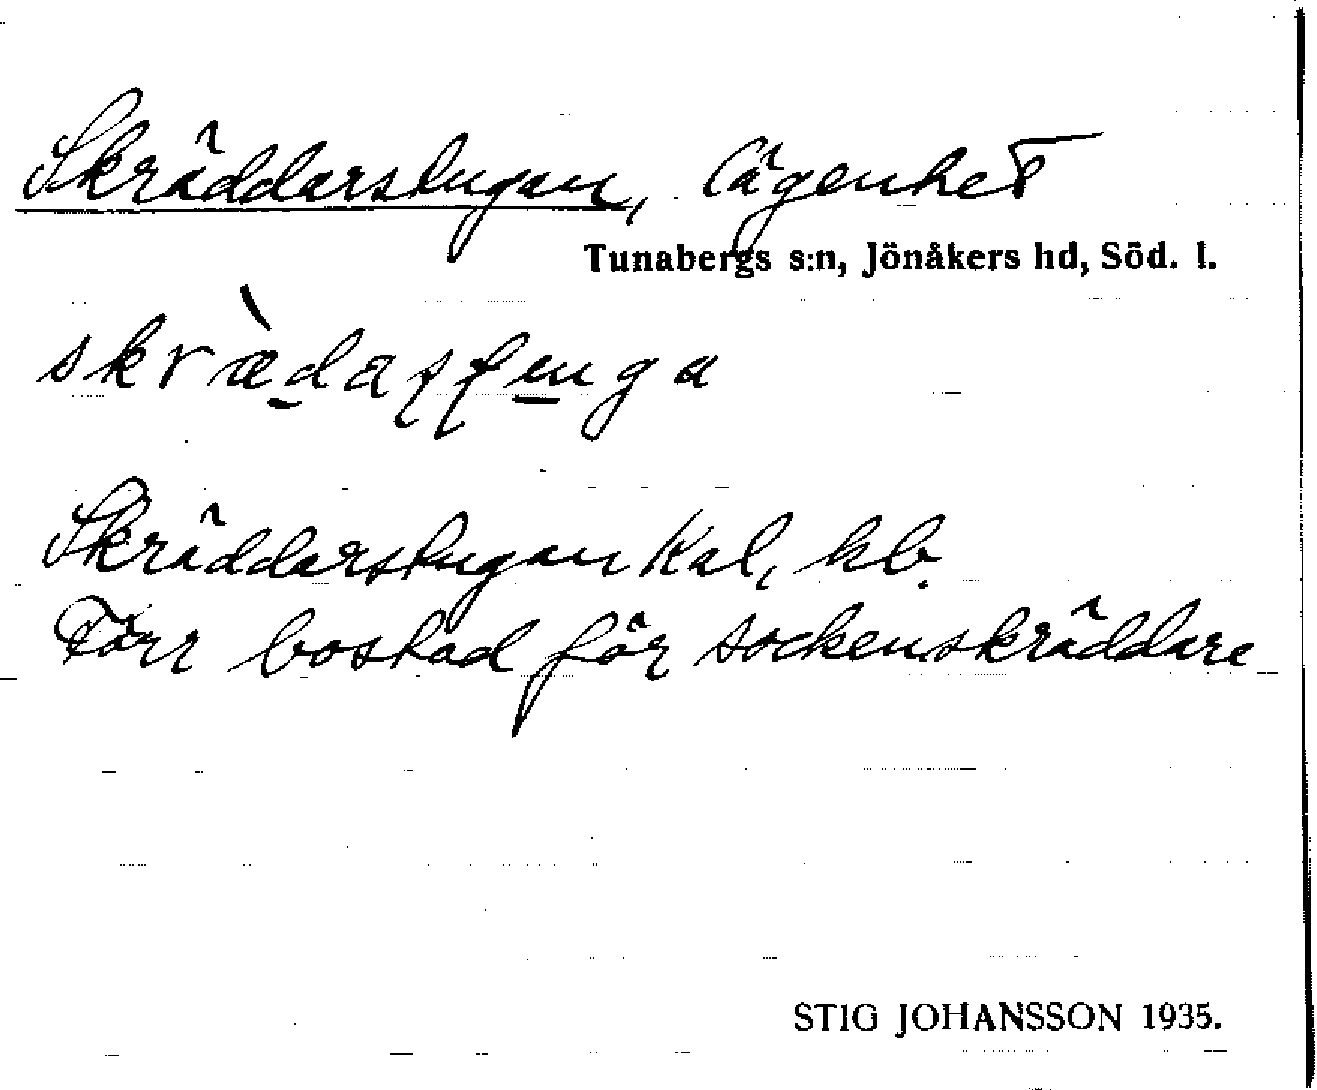 Skräddarstugan, lägenhet
Tunabergs s:n, Jönåkers hd, Söd. l.
Skräddarstugan Kal, hb.
Förr bostad för sockenskräddare
STIG JOHANSSON 1935.